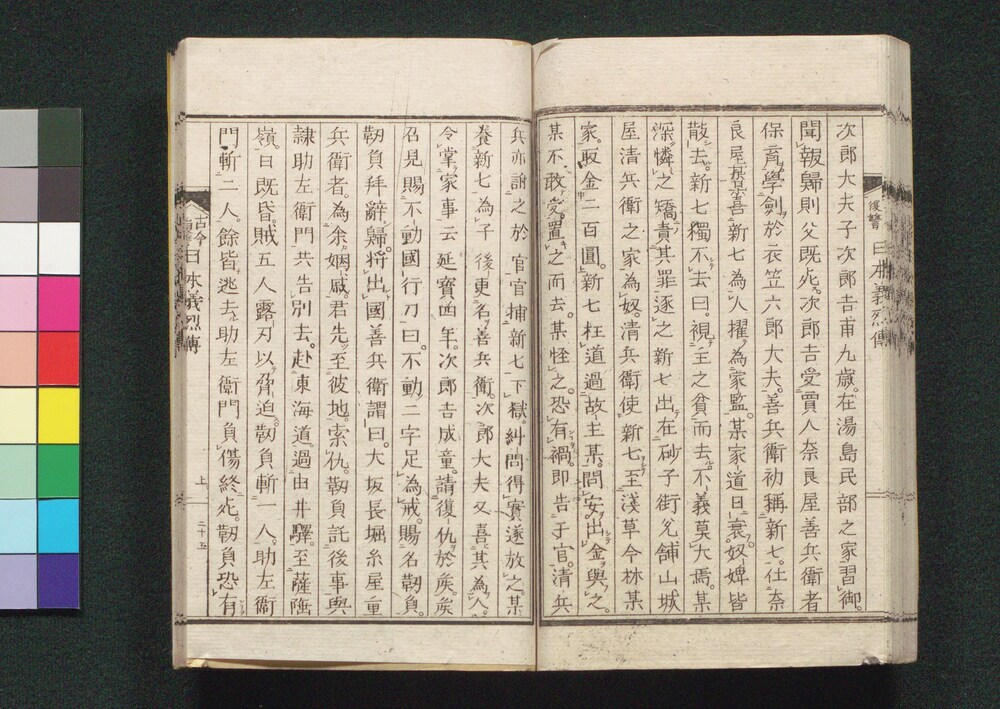 次郎大夫子次郎吉甫九歳。在湯島民部之家習御。
聞報歸則父既死。次郎吉受賈人奈良屋善兵衛者
保育。學劍於衣笠六郎大夫。善兵衛初稱新七。仕奈
良屋某。某喜新七為人擢為家監。某家道日衰。奴婢皆
散去。新七獨不去曰。視主之貧而去不義莫大焉。某
深憐之矯責其罪逐之新七出在砂子街兌舖山城
屋清兵衛之家為奴。清兵衛使新七至淺草今林某
家。取金二百圓。新七枉道過故主某。問安。出金與之。
某不敢受。置之而去。某怪之。恐有禍。即告于官。清兵
兵亦訴之於官官捕新七下獄。糾問得實遂放之。某
養新七為子後更名善兵衛。次郎大夫又喜其為人。
令掌家事云延寶四年。次郎吉成童。請復仇於侯。侯
召見賜不動國行刀曰。不動二字足為戒。賜名靱負。
靱負拜辭歸。將出國善兵衛謂曰。大坂長堀糸屋重
兵衛者。為余姻戚。君先至彼地。索仇。靱負託後事與
隷助左衛門共告別去。赴東海道。過由井驛。至薩陲
嶺。日既昏。賊五人露刃以脅迫。靱負斬一人。助左衛
門斬二人。餘皆逃去助左衛門負傷終死。靱負恐有
復讐 日本義烈傳
古今日本義烈傳
上 二十五